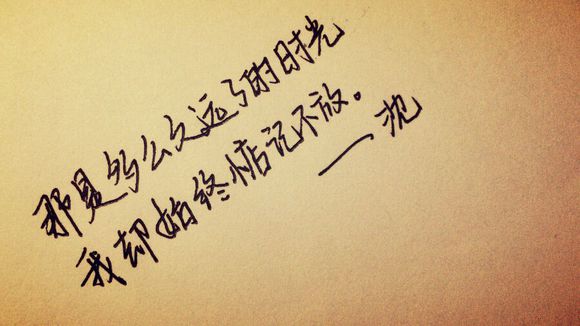 那是多么久远了的时光
我却始终惦记不放。
—沈